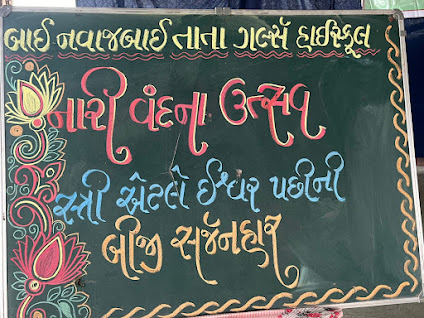 બાઈ નવાજબાઈ તાતા ગર્લ્સ હાઈસ્કૂલ
નારી વંદના ઉત્સવ
સ્ત્રી એટલે ઈશ્વર પછીની
બીજી સર્જનહાર